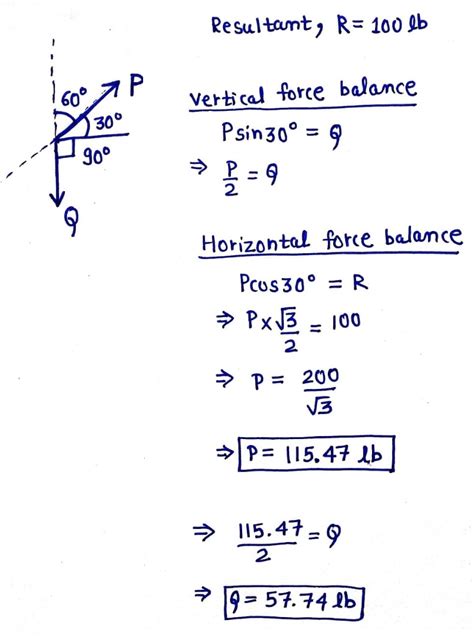 Resultant, R = 100 lb
P
60°
30°
90°
Q
Vertical force balance
Psin30° = Q
⇒ P/2 = Q
Horizontal force balance
Pcos30° = R
⇒ P×√3/2 = 100
⇒ P = 200/√3
⇒ P = 115.47 lb
⇒ 115.47/2 = Q
⇒ Q = 57.74 lb